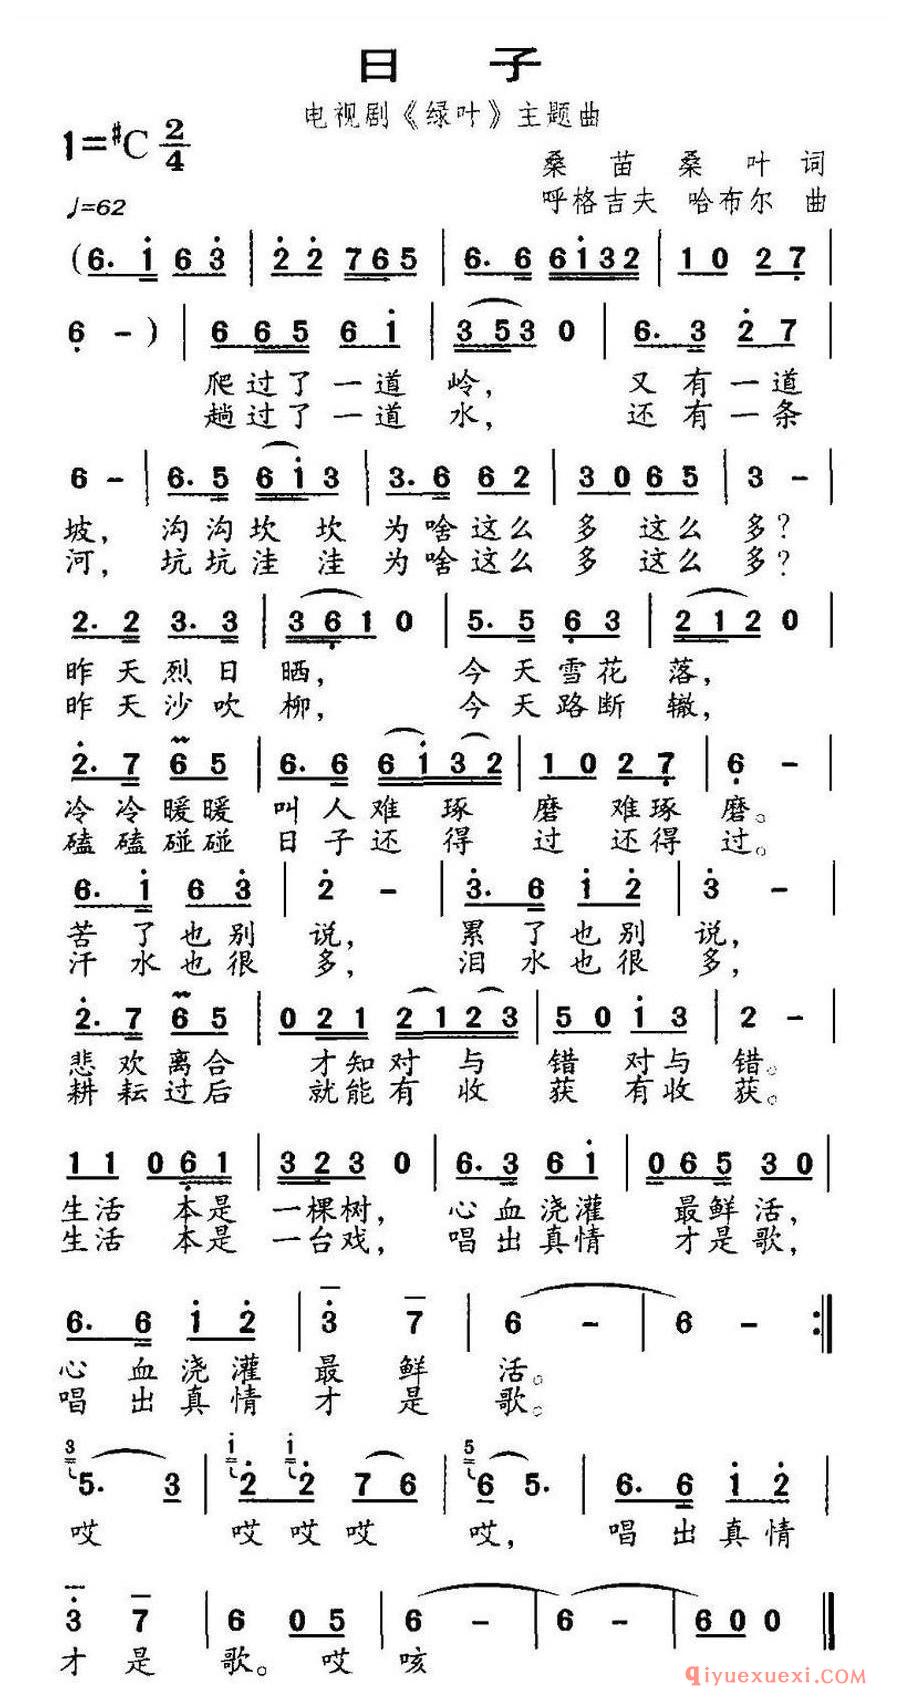 日 子
电视剧《绿叶》主题曲
1=#C 2/4
桑 苗 桑 叶 词
♩=62
呼格吉夫 哈布尔 曲
(6. 1 6 3 | 2 2 765 | 6. 6 6132 | 10 27 |
6 - ) | 6 65 6 1 | 3 53 0 | 6. 3 2 7 |
爬过了一道 岭, 又有一道
趟过了一道 水, 还有一条
6 - | 6. 5 61 3 | 3. 6 62 | 30 65 | 3 - |
坡, 沟沟坎 坎 为啥这么 多 这么 多?
河, 坑坑洼 洼 为啥这么 多 这么 多?
2. 2 3. 3 | 3 61 0 | 5. 5 63 | 2 12 0 |
昨天烈日 晒, 今天雪花 落,
昨天沙吹 柳, 今天路断 辙,
2. 7 65 | 6. 6 61 32 | 10 27 | 6 - |
冷冷暖暖 叫人难 琢 磨 难琢 磨。
磕磕碰碰 日子还 得 过 还得 过。
6. 1 63 | 2 - | 3. 6 12 | 3 - |
苦了也别 说, 累了也别 说,
汗水也很 多, 泪水也很 多,
2. 7 65 | 0 21 21 23 | 50 13 | 2 - |
悲欢离合 才知对 与 错 对与 错。
耕耘过后 就能有 收 获 有收 获。
11 061 | 323 0 | 6. 3 61 | 065 30 |
生活 本是 一棵树, 心血浇灌 最鲜 活,
生活 本是 一台戏, 唱出真情 才是 歌,
6. 6 12 | 3 7 | 6 - | 6 - :|
心血浇灌 最 鲜 活。
唱出真情 才 是 歌。
3 5. 3 | 1 2 1 2 7 6 | 5 6 5. | 6. 6 12 |
哎 哎哎哎 哎, 唱出真情
3 7 | 6 05 | 6 - | 6 - | 600 ‖
才 是 歌。 哎 咳
qiyuexuexi.COM